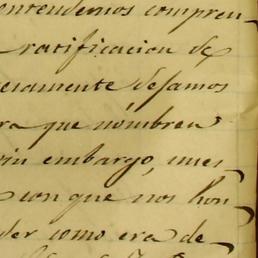 entendemos compren-
ratificacion de
eramente dejamos
ra que nombren
sin embargo, nues-
con que nos hon-
der como era de